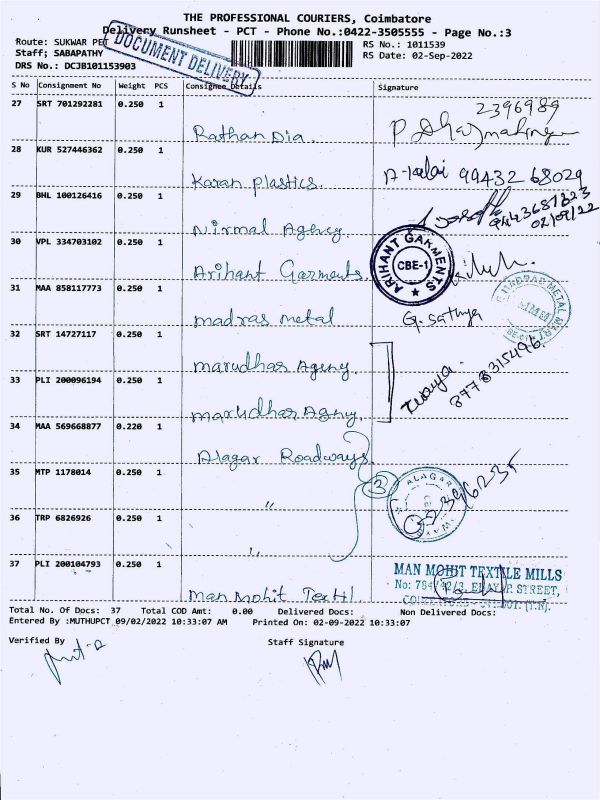 THE PROFESSIONAL COURIERS, Coimbatore
Delivery Runsheet - PCT - Phone No.:0422-3505555 - Page No.:3
Route: SUKWAR PET
RS No.: 1011539
Staff; SABAPATHY
DOCUMENT DELIVERY
RS Date: 02-Sep-2022
DRS No.: DCJB101153903
S No Consignment No Weight PCS Consignee Details Signature
27 SRT 701292281 0.250 1
2396989
Rathan Dia.
28 KUR 527446362 0.250 1
Karan Plastics.
99432 68029
29 BHL 100126416 0.250 1
Nirmal Agency
02/09/22
30 VPL 334703102 0.250 1
Arihant Garments.
ARIHANT GARMENTS
CBE-1
31 MAA 858117773 0.250 1
madras metal
G. Sathya
MADRAS METAL MART
32 SRT 14727117 0.250 1
marudhar Agency.
33 PLI 200096194 0.250 1
marudhar Agny.
8778315496.
34 MAA 569668877 0.220 1
Alagar Roadways
35 MTP 1178014 0.250 1
"
3
ALAGAR
36 TRP 6826926 0.250 1
"
37 PLI 200104793 0.250 1
Man Mohit Textil
MAN MOHIT TEXTILE MILLS
STREET,
Total No. Of Docs: 37 Total COD Amt: 0.00 Delivered Docs: Non Delivered Docs:
Entered By :MUTHUPCT 09/02/2022 10:33:07 AM Printed On: 02-09-2022 10:33:07
Verified By Staff Signature